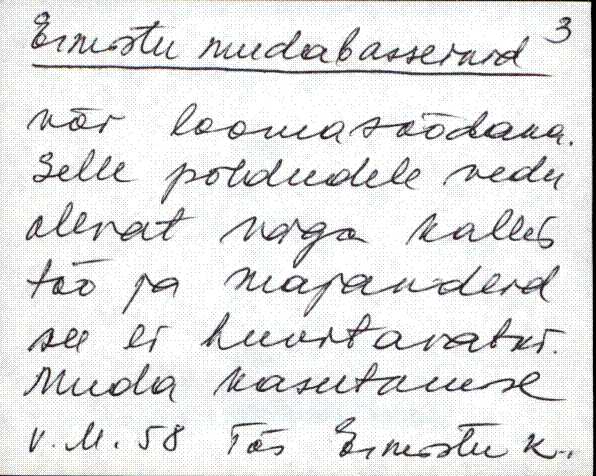 Ermistu mudabasseinid 3
või loomasöödana.
Selle põldudele vedu
olevat väga kallis
töö ja majandeid
see ei huvitavatki.
Muda kasutamise
V. M. 58 Tõs Ermistu k.